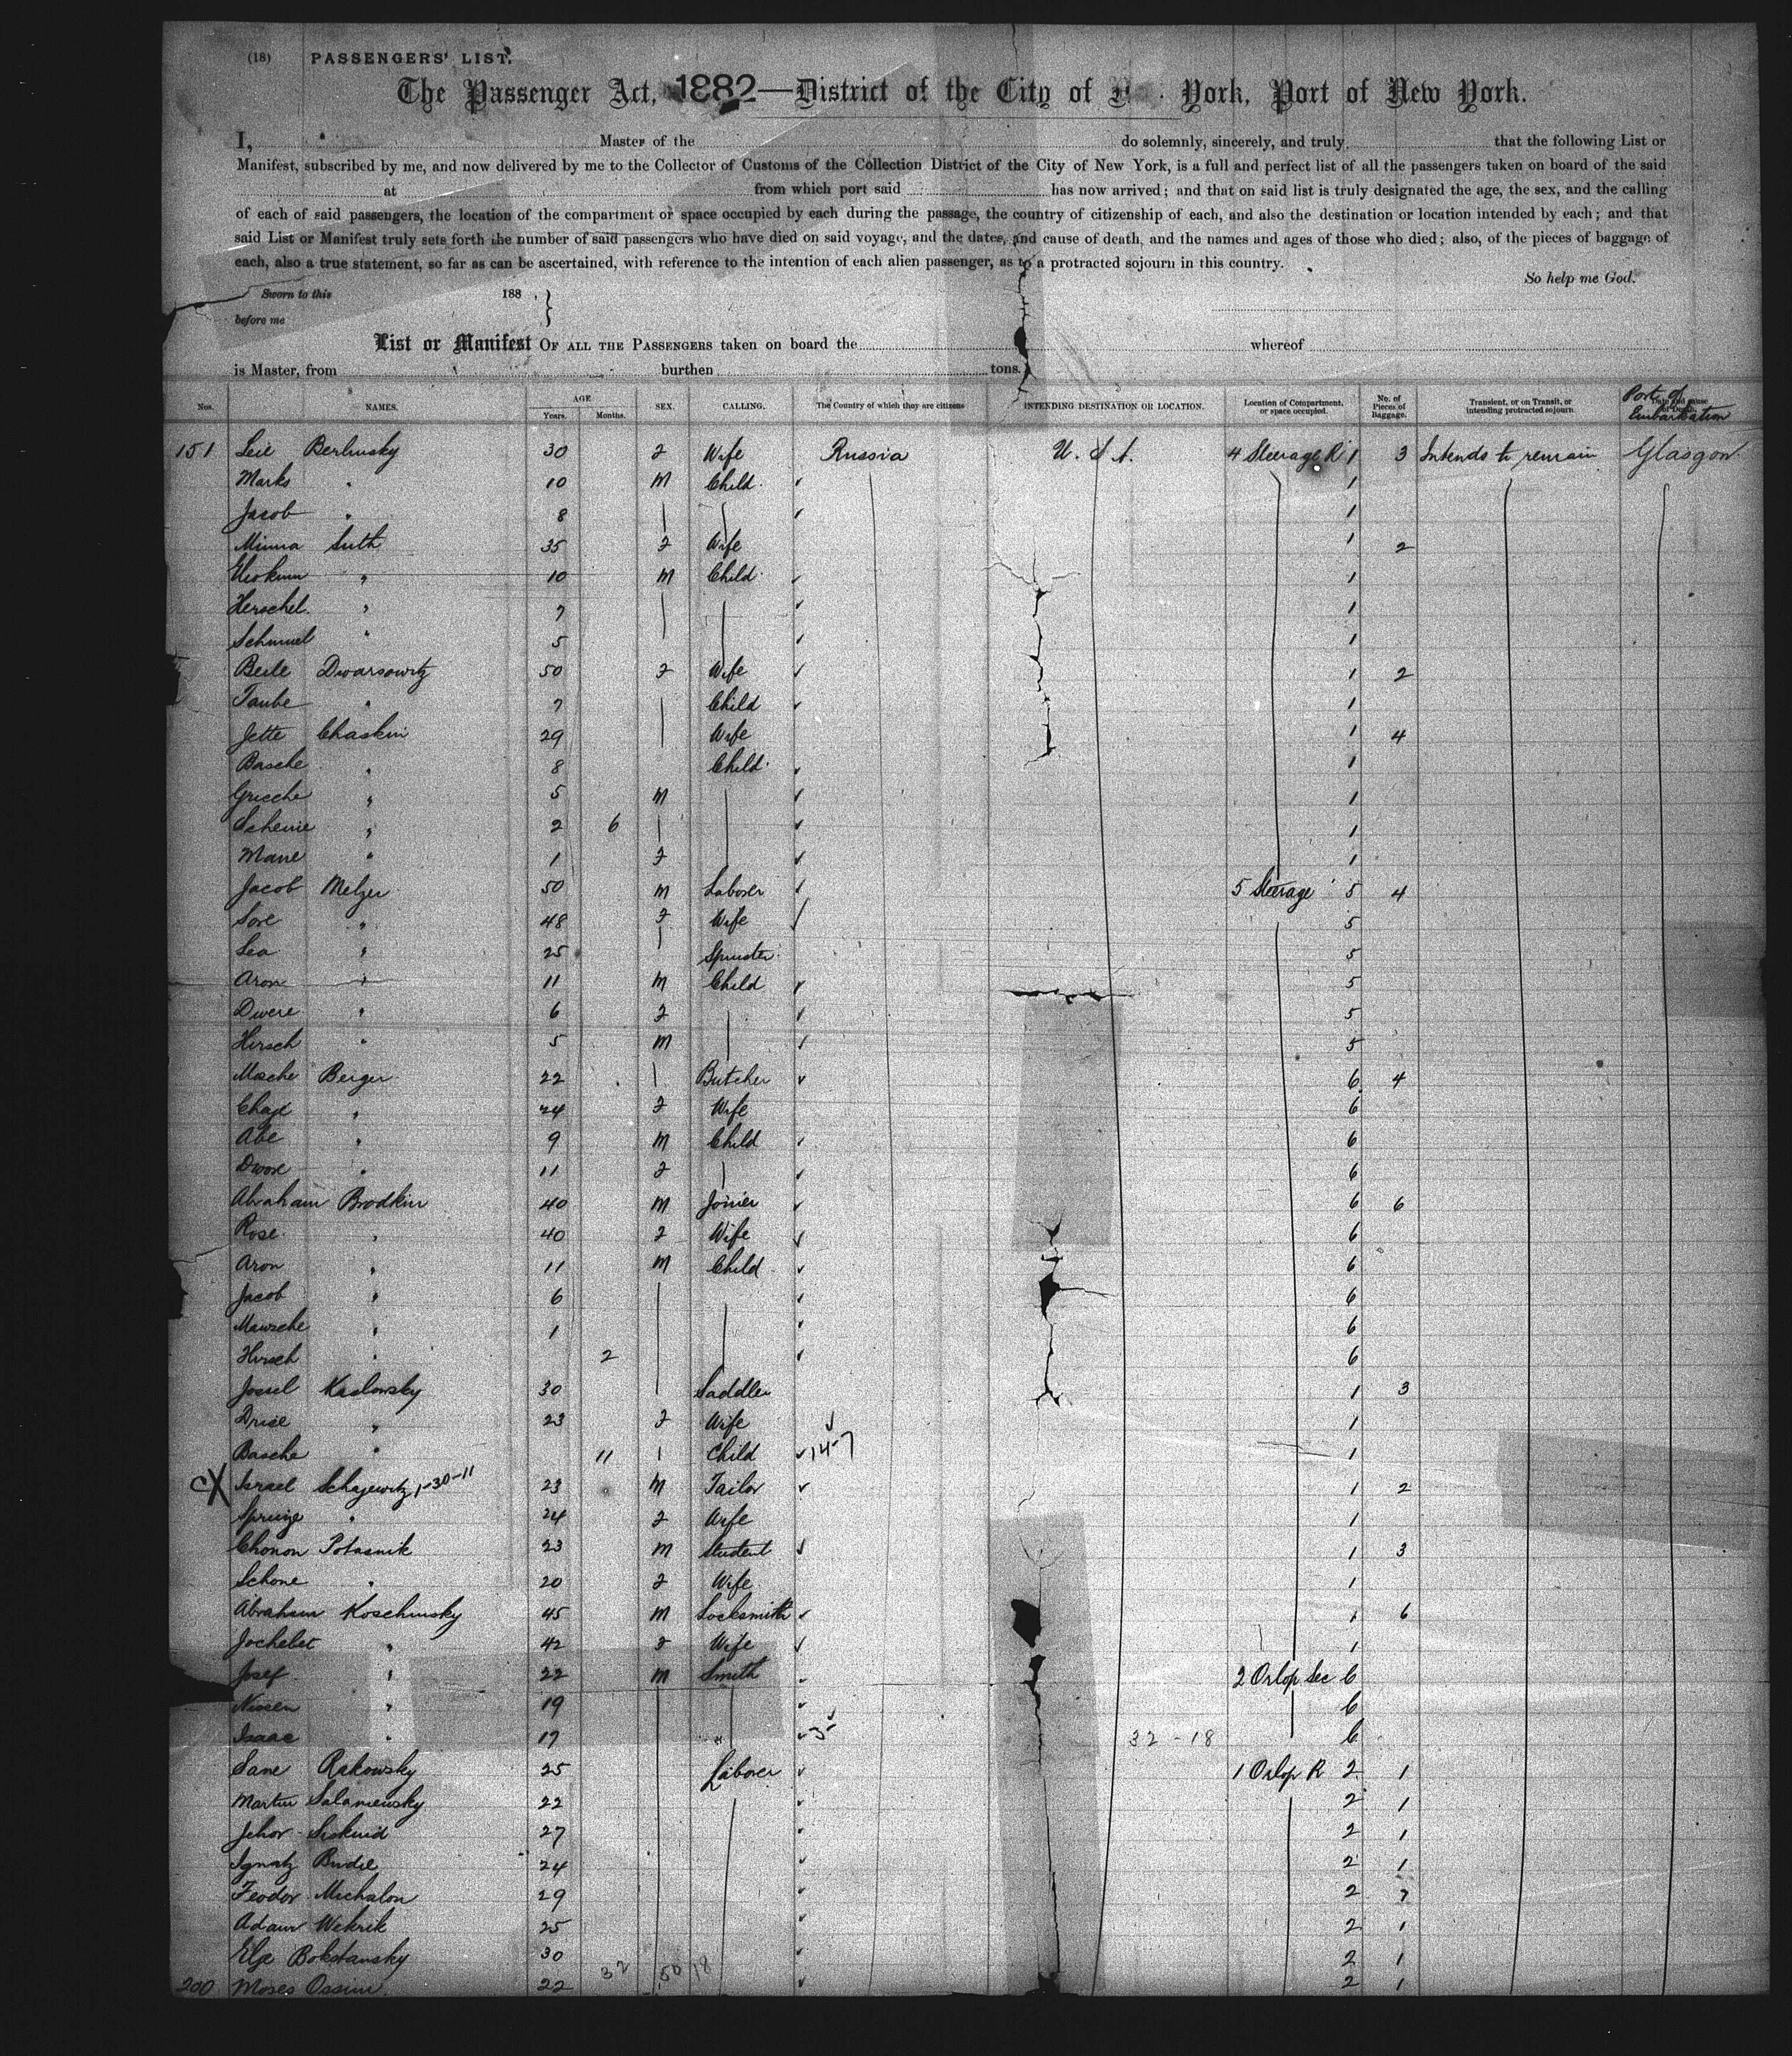 (18) PASSENGERS' LIST.
The Passenger Act, 1882—District of the City of York, Port of New York.
I, Master of the do solemnly, sincerely, and truly that the following List or
Manifest, subscribed by me, and now delivered by me to the Collector of Customs of the Collection District of the City of New York, is a full and perfect list of all the passengers taken on board of the said
at from which port said has now arrived; and that on said list is truly designated the age, the sex, and the calling
of each of said passengers, the location of the compartment or space occupied by each during the passage, the country of citizenship of each, and also the destination or location intended by each; and that
said List or Manifest truly sets forth the number of said passengers who have died on said voyage, and the dates, and cause of death, and the names and ages of those who died; also, of the pieces of baggage of
each, also a true statement, so far as can be ascertained, with reference to the intention of each alien passenger, as to a protracted sojourn in this country.
So help me God.
Sworn to this 188 ,
before me
List or Manifest OF ALL THE PASSENGERS taken on board the whereof
is Master, from burthen tons.
Nos. NAMES. AGE Years. Months. SEX CALLING. The Country of which they are citizens INTENDING DESTINATION OR LOCATION. Location of Compartment, or space occupied. No. of Pieces of Baggage. Transient, or on Transit, or intending protracted sojourn Port of Embarkation
151 Leie Berlinsky 30 F Wife Russia U.S.A. 4 Steerage R 1 3 Intends to remain Glasgow
Marks " 10 M Child 1
Jacob " 8 1
Minna Suth 35 F Wife 1 2
" 10 M Child 1
Herschel " 7 1
Schmuel " 5 1
Beile Dwarsowitz 50 F Wife 1 2
Taube " 7 Child 1
Jette Chaskin 29 Wife 1 4
Basche " 8 Child 1
Grieche " 5 M 1
Schenie " 2 6 1
Mane " 1 F 1
Jacob Melzer 50 M Laborer 5 Steerage 5 4
Sore " 48 F Wife 5
Lea " 25 Spinster 5
Aron " 11 M Child 5
Dwere " 6 F 5
Hirsch " 5 M 5
Mosche Berger 22 Butcher 6 4
Chaje " 24 F Wife 6
Abe " 9 M Child 6
Dwore " 11 F 6
Abraham Brodkin 40 M Joiner 6 6
Rose " 40 F Wife 6
Aron " 11 M Child 6
Jacob " 6 6
Mausche " 1 6
Hirsch " 2 6
Jossel Kaslowsky 30 Saddler 1 3
Drise " 23 F Wife 1
Basche " 11 Child 14-7 1
CX Israel Schajewitz 1-30-11 23 M Tailor 1 2
Sprinze " 24 F Wife 1
Chonon Potasnik 23 M Student 1 3
Schone " 20 F Wife 1
Abraham Koschinsky 45 M Locksmith 1 6
Jochebet " 42 F Wife 1
Josef " 22 M Smith 2 Orlop Sec 6
Nissen " 19 6
Isaac " 17 " 5 32-18 6
Sane Rakowsky 25 Laborer 1 Orlop R 2 1
Martin Salamensky 22 2 1
Jehor Siskind 27 2 1
Ignatz Budie 24 2 1
Feodor Michalon 29 2
Adam Wekrik 25 2 1
Bokstansky 30 2 1
200 Moses Ossim 22 32 50 18 2 1